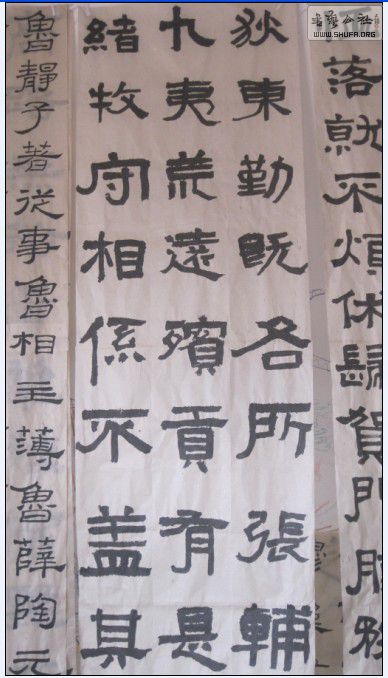 書藝公社
WWW.SHUFA.ORG
落就不煩休歸賀門服
狄東勤既各所張輔
九夷荒遠殯貢有是
緒牧守相係不盖其
魯靜子著從事魯相主薄魯薛陶元